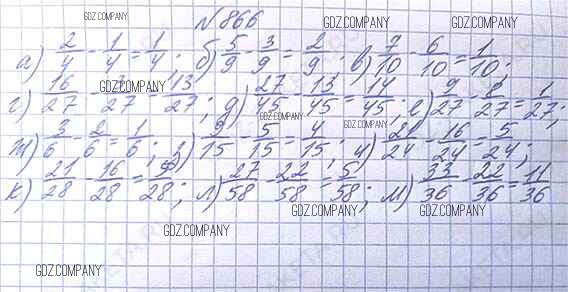 №866
а) 2/4 - 1/4 = 1/4; б) 5/9 - 3/9 = 2/9; в) 7/10 - 6/10 = 1/10;
г) 16/27 - 3/27 = 13/27; д) 27/45 - 13/45 = 14/45; е) 9/27 - 8/27 = 1/27;
ж) 3/6 - 2/6 = 1/6; з) 9/15 - 5/15 = 4/15; и) 21/24 - 16/24 = 5/24;
к) 21/28 - 16/28 = 5/28; л) 27/58 - 22/58 = 5/58; м) 33/36 - 22/36 = 11/36
GDZ.COMPANY
GDZ.COMPANY
GDZ.COMPANY
GDZ.COMPANY
GDZ.COMPANY
GDZ.COMPANY
GDZ.COMPANY
GDZ.COMPANY
GDZ.COMPANY